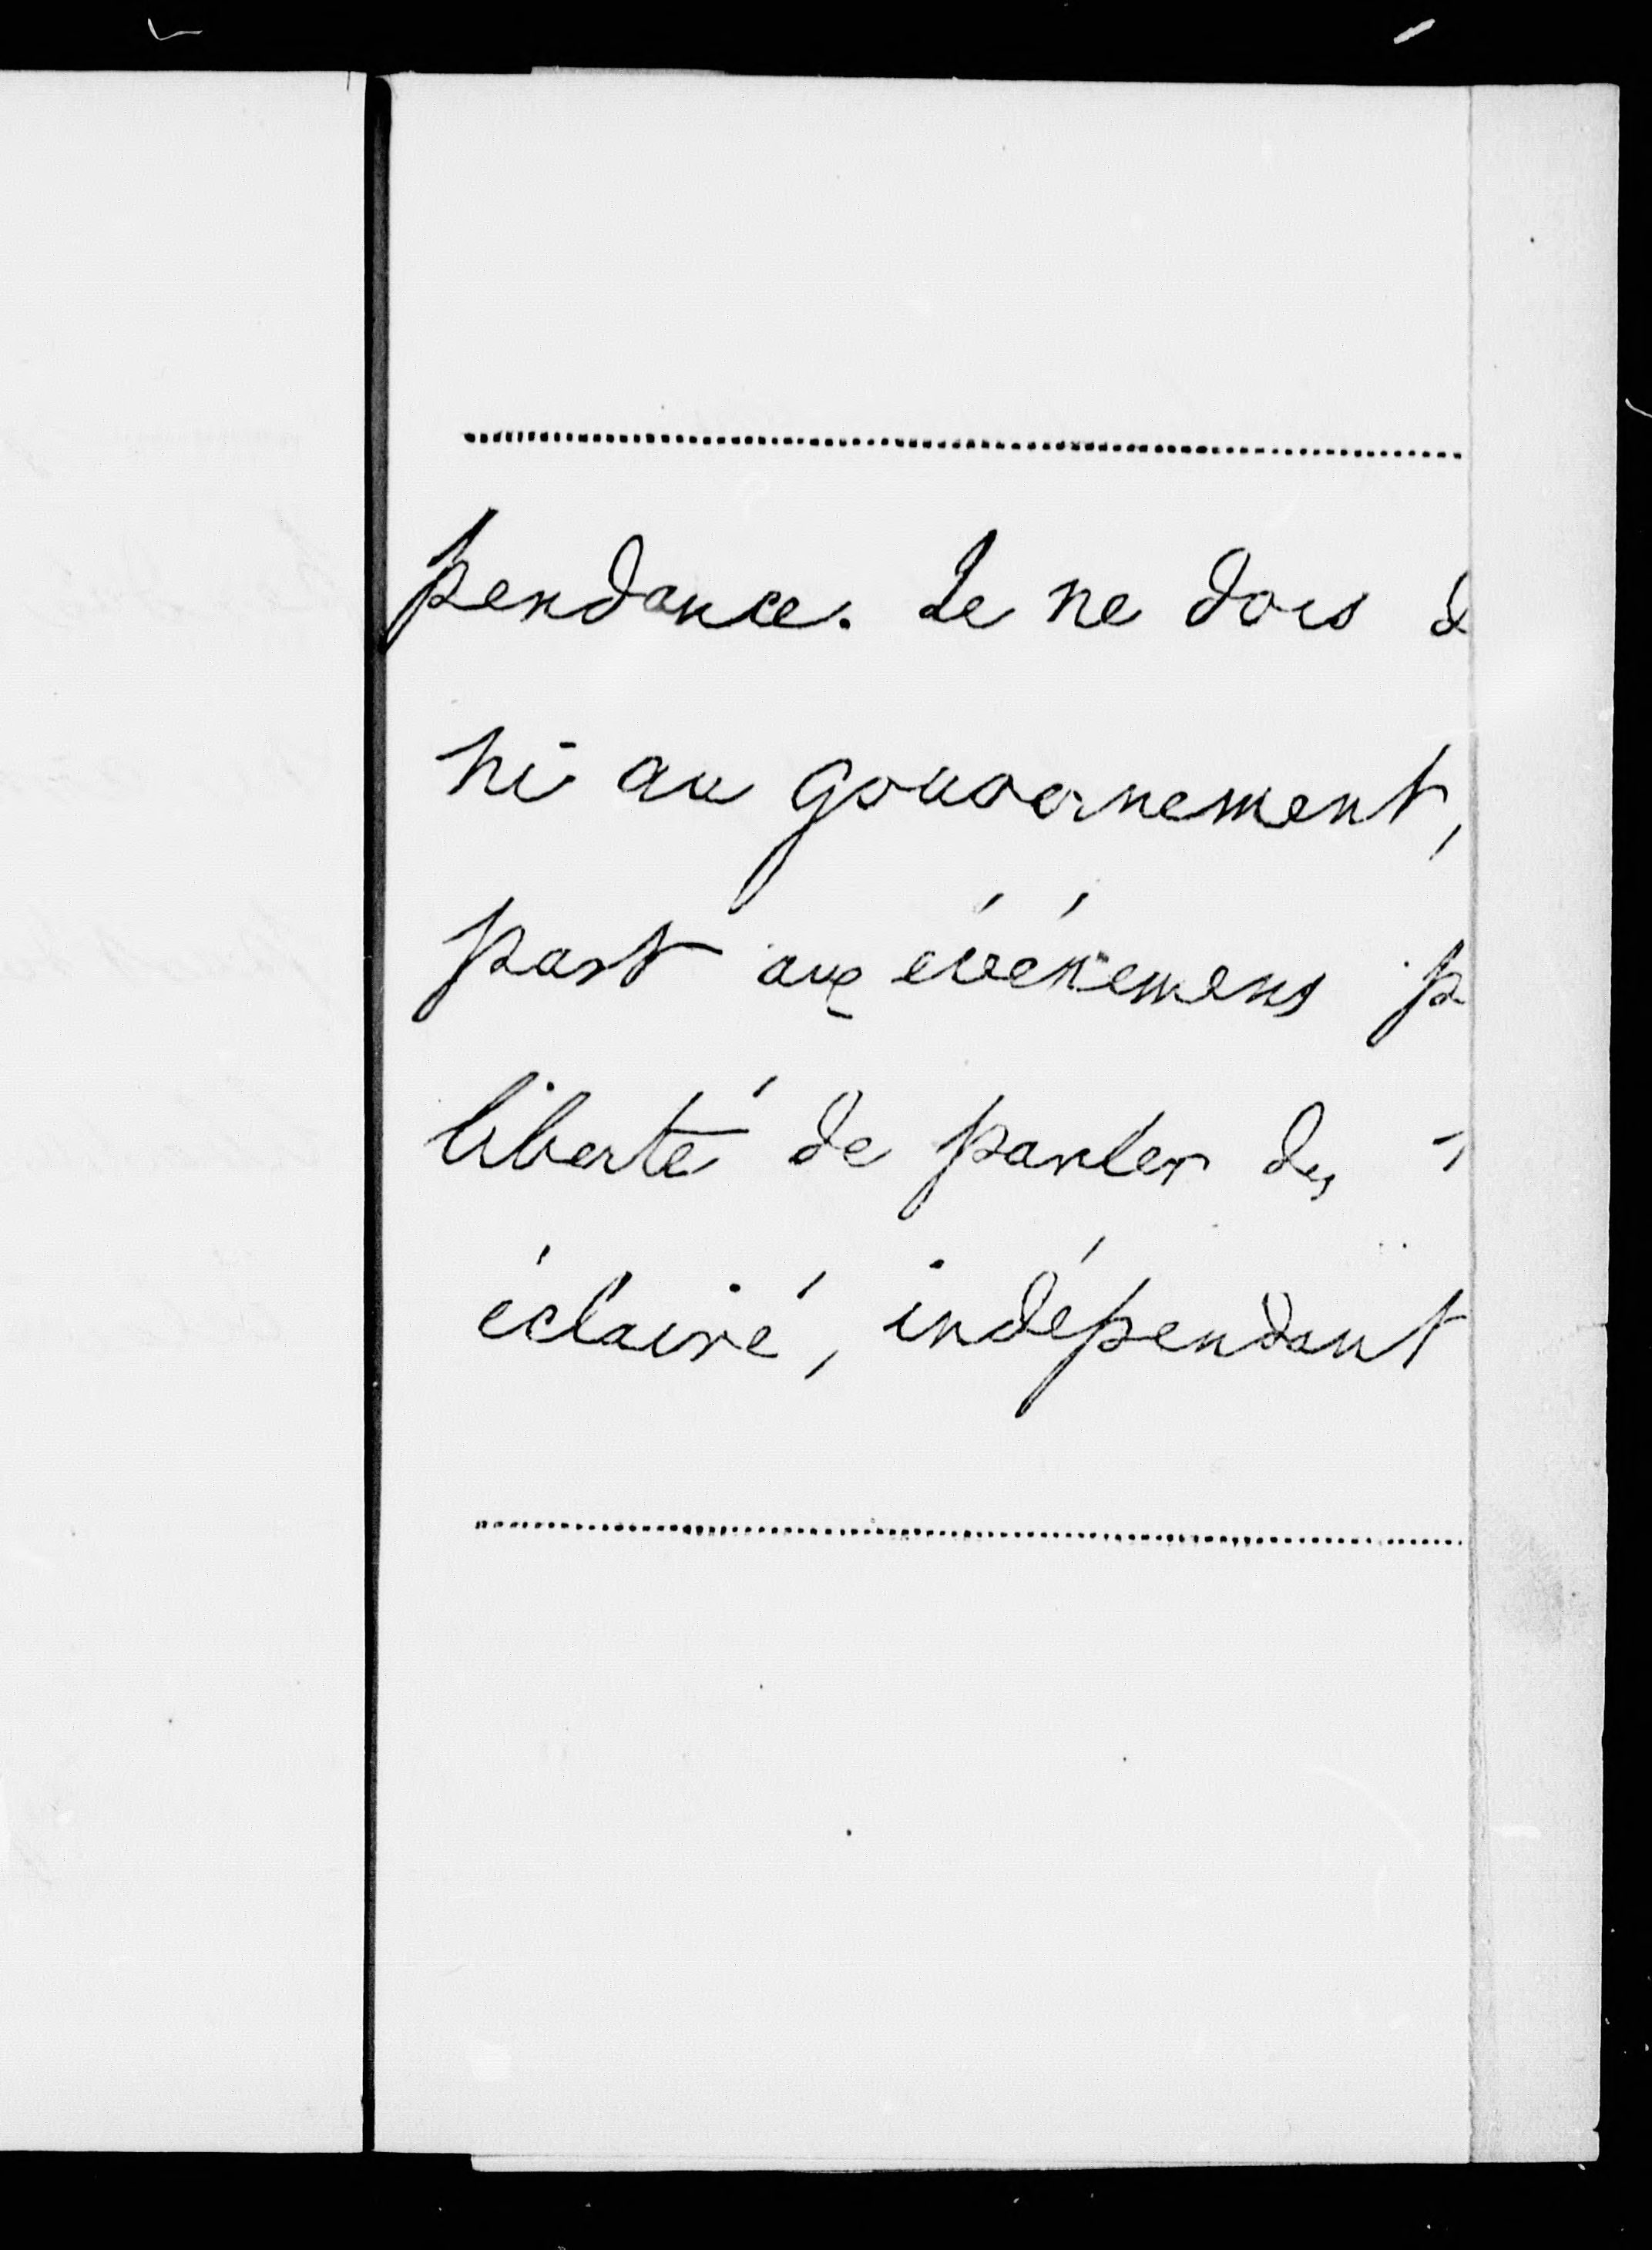 pendance. Je ne dois
ni au gouvernement,
part aux événemens
liberté de parler des
éclairé, indépendant